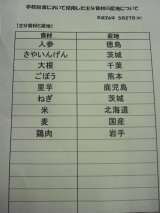 学校給食において使用した主な食材の産地について
平成26年 5月27日(火)
【主な食材の産地】
食材 産地
人参 徳島
さやいんげん 茨城
大根 千葉
ごぼう 熊本
里芋 鹿児島
ねぎ 茨城
米 北海道
麦 国産
鶏肉 岩手